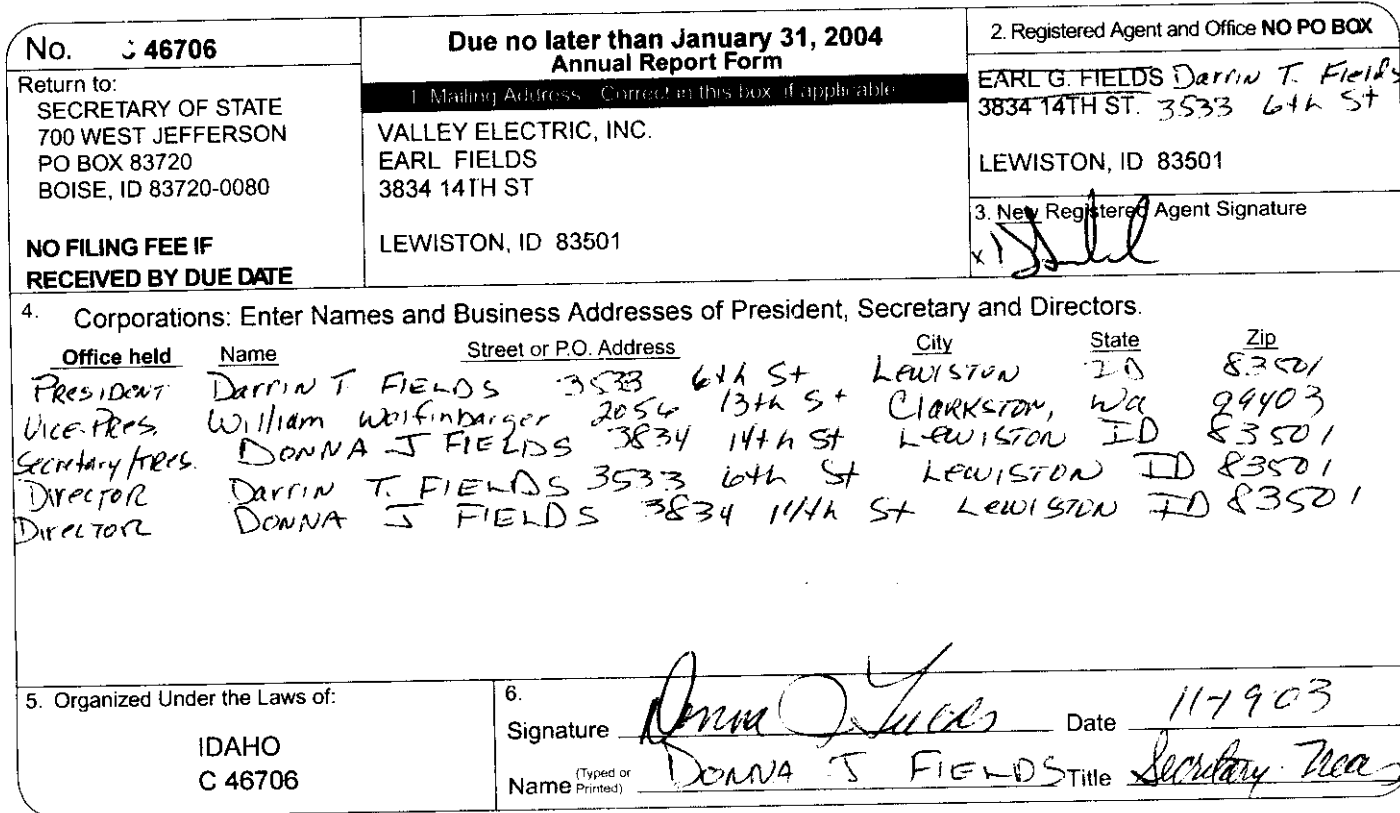 No. C 46706
Return to:
SECRETARY OF STATE
700 WEST JEFFERSON
PO BOX 83720
BOISE, ID 83720-0080
NO FILING FEE IF
RECEIVED BY DUE DATE
Due no later than January 31, 2004
Annual Report Form
1. Mailing Address. Correct in this box if applicable
VALLEY ELECTRIC, INC.
EARL FIELDS
3834 14TH ST
LEWISTON, ID 83501
2. Registered Agent and Office NO PO BOX
EARL G. FIELDS Darrin T. Fields
3834 14TH ST. 3533 6th St
LEWISTON, ID 83501
3. New Registered Agent Signature
x
4. Corporations: Enter Names and Business Addresses of President, Secretary and Directors.
Office held Name Street or P.O. Address City State Zip
PRESIDENT Darrin T. FIELDS 3533 6th St LEWISTON ID 83501
Vice-Pres. William Wolfinbarger 2056 13th St Clarkston, Wa 99403
Secretary/Tres. DONNA J FIELDS 3834 14th St LEWISTON ID 83501
Director Darrin T. FIELDS 3533 6th St LEWISTON ID 83501
Director DONNA J FIELDS 3834 14th St LEWISTON ID 83501
5. Organized Under the Laws of:
IDAHO
C 46706
6.
Signature Donna J Fields Date 11-19-03
Name (Typed or Printed) DONNA J FIELDS Title Secretary-Treas